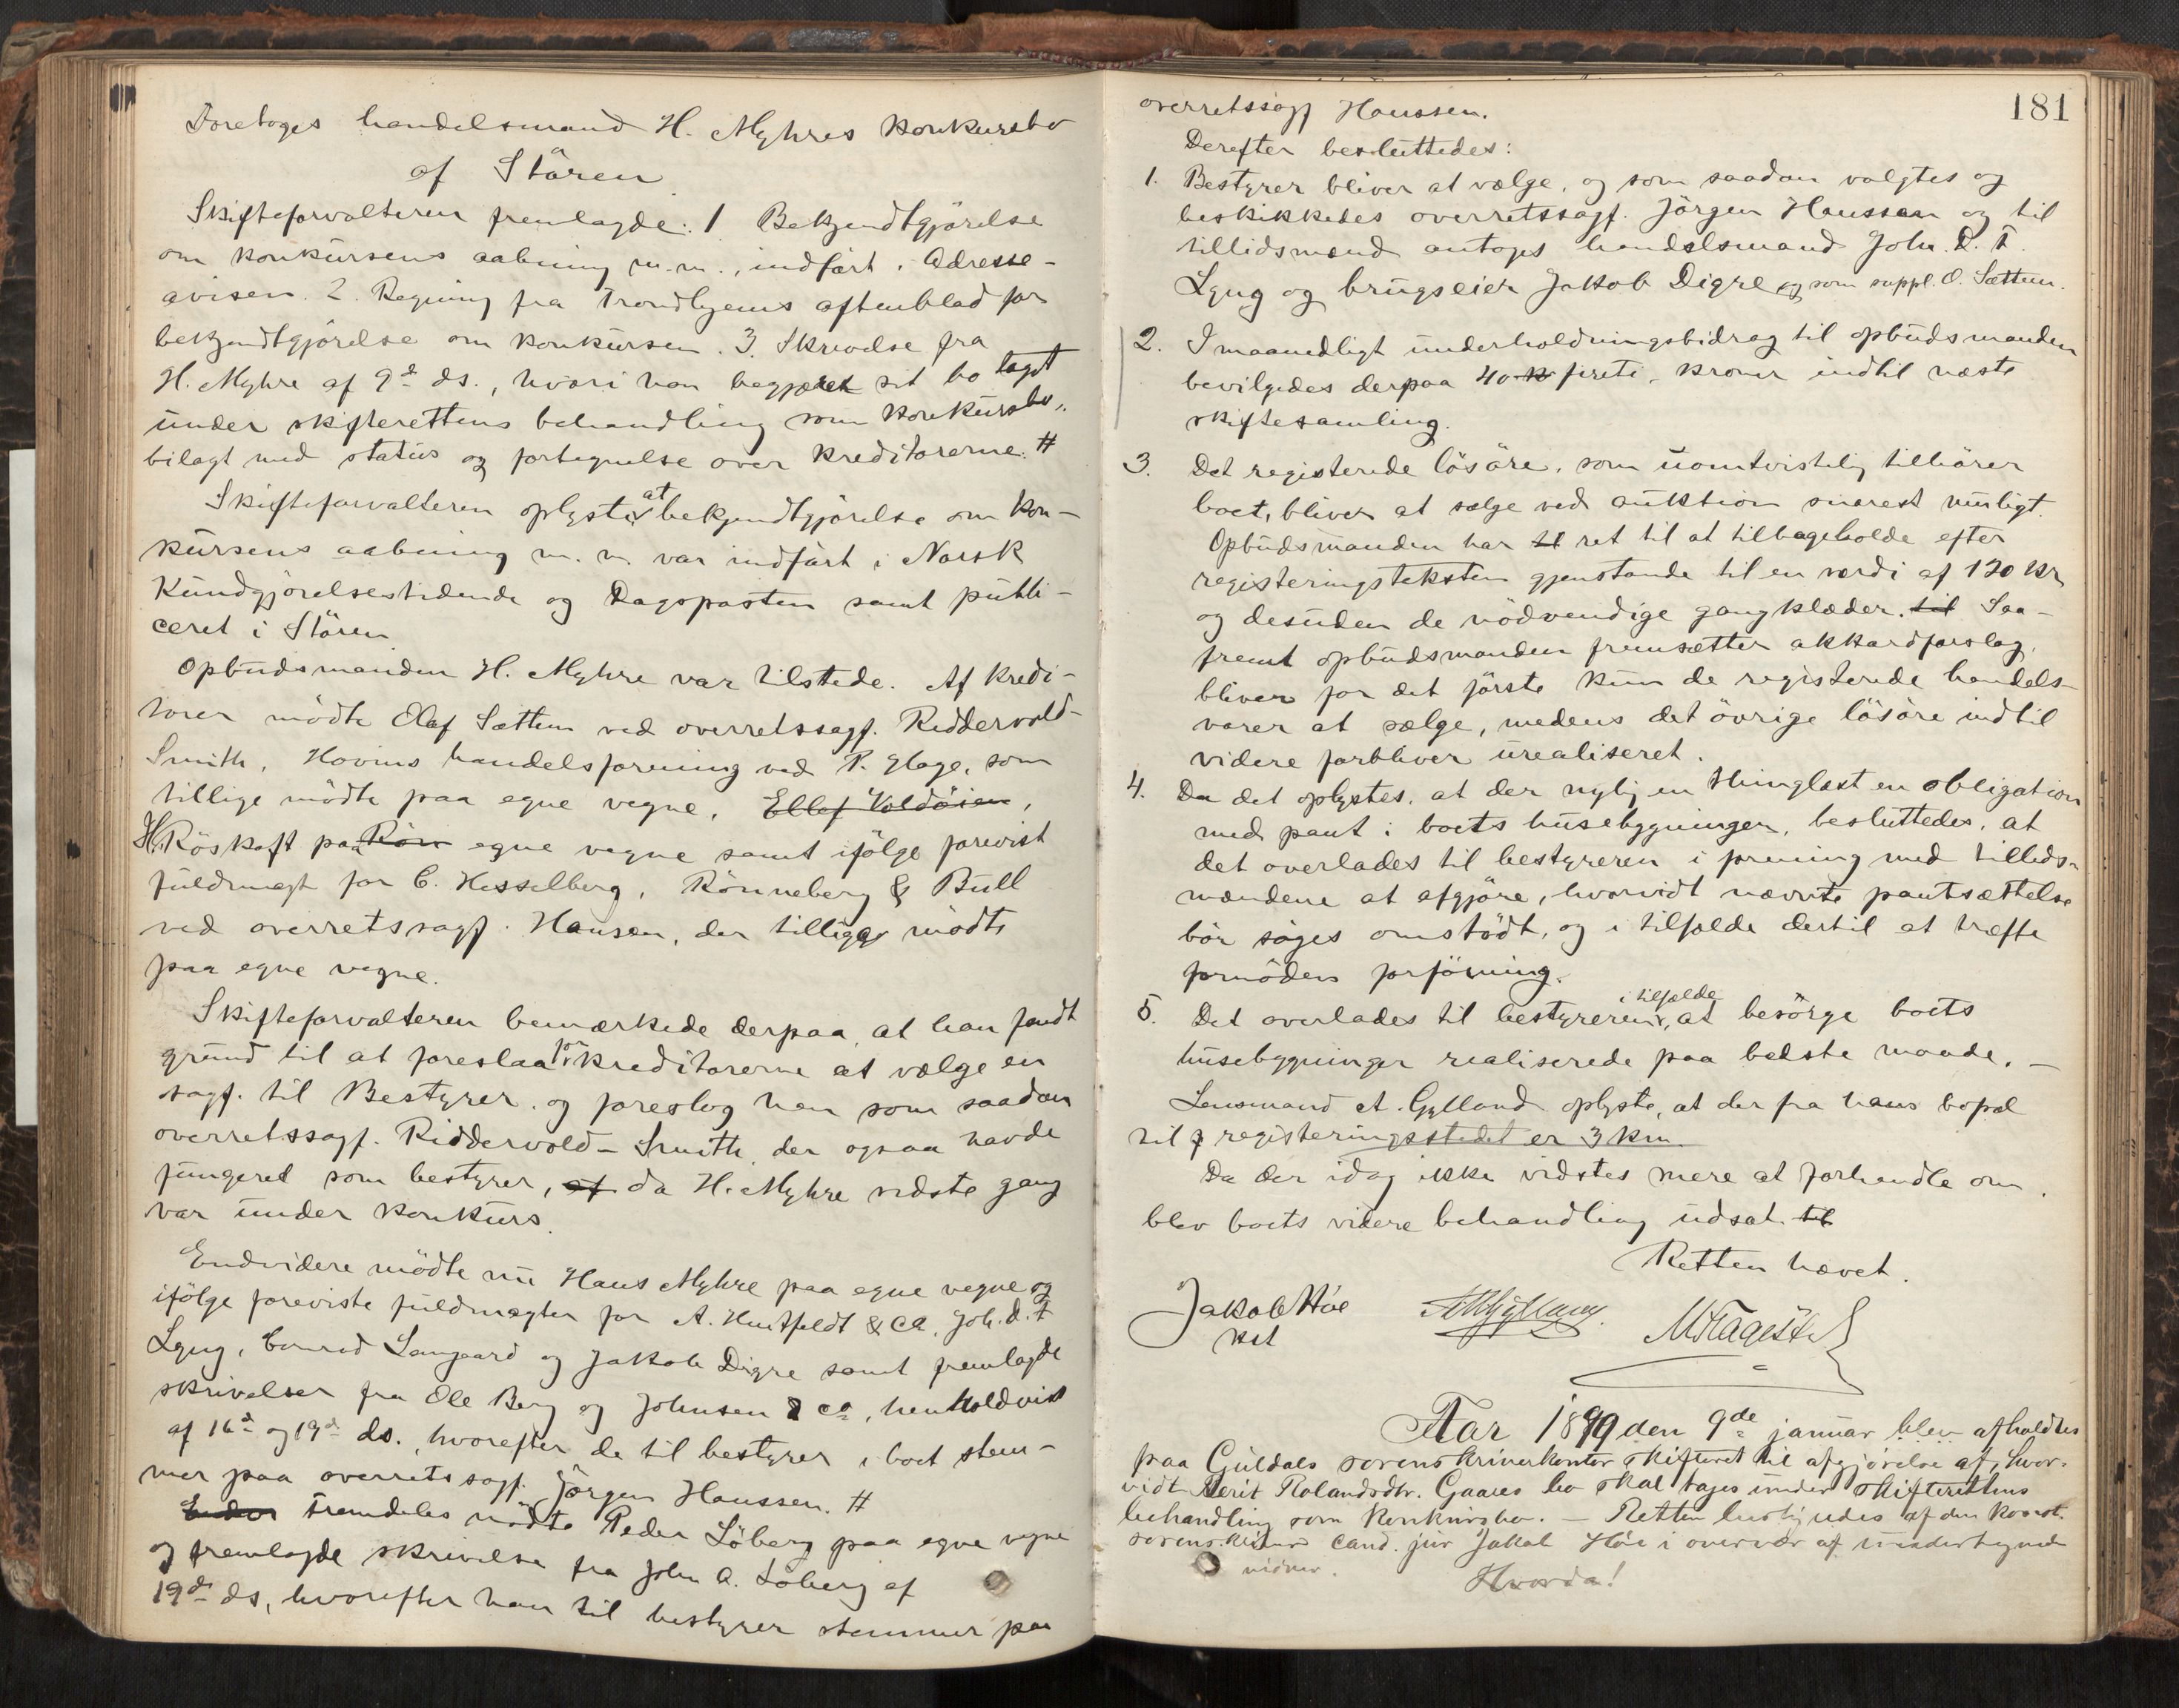 Foretoges handelsmand H. Myhres konkursbo
af Stören.
Skifteforvalteren fremlagde: 1 Bekjendtgjörelse
om konkursens aabning m.m., indfört i Adresse-
avisen. 2. Regning fra Trondhjems aftenblad for
bekjendtgjörelse om konkursen. 3. Skrivelse fra
H. Myhre af 9de ds., hvori han begjæret sit bo tagt
under skifterettens behandling som konkursbo,
bilagt med status og fortegnelse over kreditorerne. #
Skifteforvalteren oplyste at bekjendtgjörelse om kon-
kursens aabning m. m. var indfört i Norsk
Kundgjörelsestidende og Dagsposten samt publi-
ceret i Stören
Opbudsmanden H. Myhre var tilstede. Af kredi-
torer mödte Olaf Sættem ved overretssagf. Riddervold-
Smith, Hovins handelsforening ved P. Hage, som
tillige mödte paa egne vegne, Ellef Voldöien,
H. Röskaft paa Rön egne vegne samt ifölge forevist
fuldmagt for C. Hesselberg, Rönneberg & Bull
ved overretssagf. Hansen, der tillige mödte
paa egne vegne.
Skifteforvalteren bemærkede derpaa, at han fandt
grund til at foreslaa for kreditorerne at vælge en
sagf. til Bestyrer og foreslog han som saadan
overretssagf. Riddervold-Smith, der ogsaa havde
fungeret som bestyrer, at da H. Myhre sidste gang
var under konkurs.
Endvidere mödte nu Hans Myhre paa egne vegne og
ifölge foreviste fuldmagter for A. Huitfeldt & Co, Joh. D. F
Lyng, Conrad Langaard og Jakob Digre samt fremlagde
skrivelser fra Ole Berg og Johnsen & Co, henholdvist
af 16de og 19de ds., hvorefter de til bestyrer i boet stem-
mer paa overretssagf. Jörgen Haussen. #
Endvi Fremdeles mödte Peder Löberg paa egne vegne
og fremlagde skrivelse fra John A. Löberg af
19de ds, hvorefter han til bestyrer stemmer paa
181
overretssagf Haussen.
Derefter besluttedes:
1. Bestyrer bliver at vælge, og som saadan valgtes og
beskikkedes overretssagf. Jörgen Haussen og til
tillidsmænd antoges handelsmand Joh. D. F.
Lyng og brugseier Jakob Digre og som suppl. O. Sættem.
2. I maanedligt underholdningsbidrag til opbudsmanden
bevilgedes derpaa 40 kr fireti - kroner indtil næste
skiftesamling.
3. Det registerede lösöre, som uomtvistelig tilhörer
boet, bliver at sælge ved auktion snarest muligt.
Opbudsmanden har til ret til at tilbageholde efter
registeringsteksten gjenstande til en værdi af 120 Kr
og desuden de nödvendige gangklæder. til Saa-
fremt opbudsmanden fremsætter akkordforslag,
bliver for det förste kun de registerede handels-
varer at sælge, medens det övrige lösöre indtil
videre forbliver urealiseret.
4. Da det oplystes, at der nylig en thinglæst en obligation
med pant i boets husebygninger, besluttedes, at
det overlades til bestyreren i forening med tillids-
mændene at afgjöre, hvorvidt nævnte pantsættelse
bör söges omstödt, og i tilfælde dertil at træffe
fornöden forföining.
5. Det overlades til bestyreren i tilfælde, at besörge boets
husebygninger realiserede paa bedste maade. -
Lensmand A. Gylland oplyste, at der fra hans bopæl
til registeringsstedet er 3 km.
Da der idag ikke vidstes mere at forhandle om,
blev boets videre behandling udsat til
Retten hævet.
Jakob Höe
kst
Aar 1899 den 9de januar blev afholdtes
paa Guldals sorenskriverkontor skifteret til afgjörelse af, hvor-
vidt Berit Rolandsdtr. Gaares bo skal tages under skifterettens
behandling som konkursbo. - Retten betjentes af den konst.
sorenskriver cand. jur Jakob Höe i overvær af undertegnede
vidner. Hvorda!